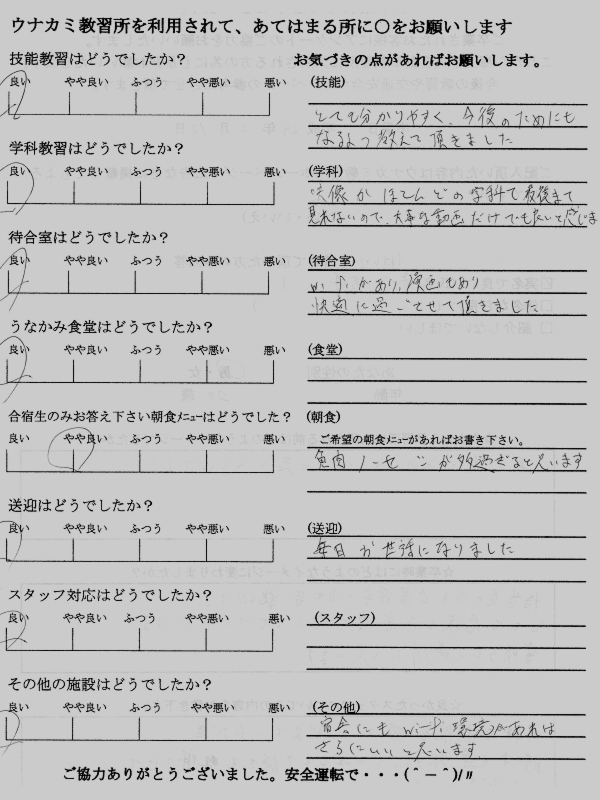 ウナカミ教習所を利用されて、あてはまる所に〇をお願いします
技能教習はどうでしたか？
お気づきの点があればお願いします。
良い やや良い ふつう やや悪い 悪い
(技能)
とても分かりやすく、今後のためにも
なるよう教えて頂きました
学科教習はどうでしたか？
良い やや良い ふつう やや悪い 悪い
(学科)
映像がほとんどの学科で最後まで
見れないので、大事な動画だけでも良いと感じま
待合室はどうでしたか？
良い やや良い ふつう やや悪い 悪い
(待合室)
wi-fiがあり、漫画もあり
快適に過ごさせて頂きました
うなかみ食堂はどうでしたか？
良い やや良い ふつう やや悪い 悪い
(食堂)
合宿生のみお答え下さい朝食ﾒﾆｭｰはどうでしたか？
良い やや良い ふつう やや悪い 悪い
(朝食)
ご希望の朝食ﾒﾆｭｰがあればお書き下さい。
魚肉ソーセージが多過ぎると思います
送迎はどうでしたか？
良い やや良い ふつう やや悪い 悪い
(送迎)
毎日お世話になりました
スタッフ対応はどうでしたか？
良い やや良い ふつう やや悪い 悪い
(スタッフ)
その他の施設はどうでしたか？
良い やや良い ふつう やや悪い 悪い
(その他)
宿舎にもwi-fi環境があれば
さらにいいと思います
ご協力ありがとうございました。安全運転で・・・(＾－＾)/〃